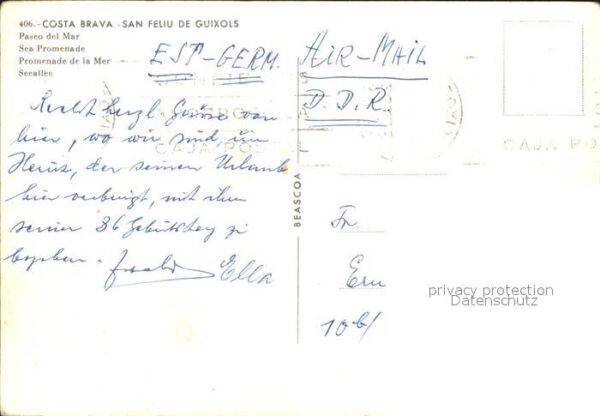 406.-COSTA BRAVA.-SAN FELIU DE GUIXOLS
Paseo del Mar
Sea Promenade
Promenade de la Mer
Seeallee
EST-GERM. AIR-MAIL
D.D.R.
CAJA POSTAL
CAJA POS
Recht herzl. Grüsse von
hier, wo wir sind, um
Heinz, der seinen Urlaub
hier verbringt, mit ihm
seinen 36 Geburtstag zu
Ewald Ella
BEASCOA
Fr.
10b/
privacy protection
Datenschutz